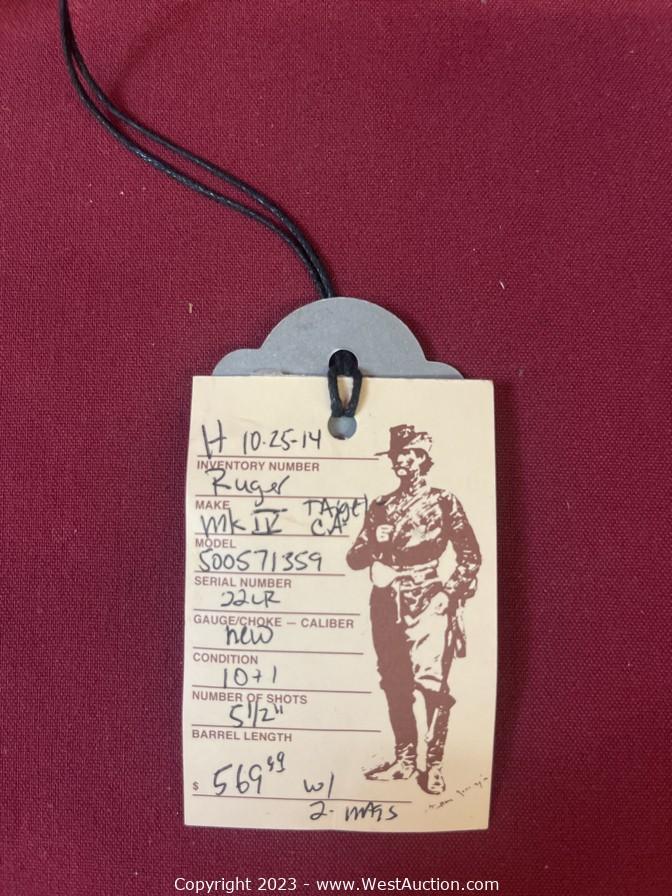 H 10-25-14
INVENTORY NUMBER
Ruger
MAKE
Target
Mk IV CA
MODEL
500571359
SERIAL NUMBER
22LR
GAUGE/CHOKE — CALIBER
new
CONDITION
10+1
NUMBER OF SHOTS
5 1/2"
BARREL LENGTH
$ 569 99 w/
2- mags
Copyright 2023 - www.WestAuction.com